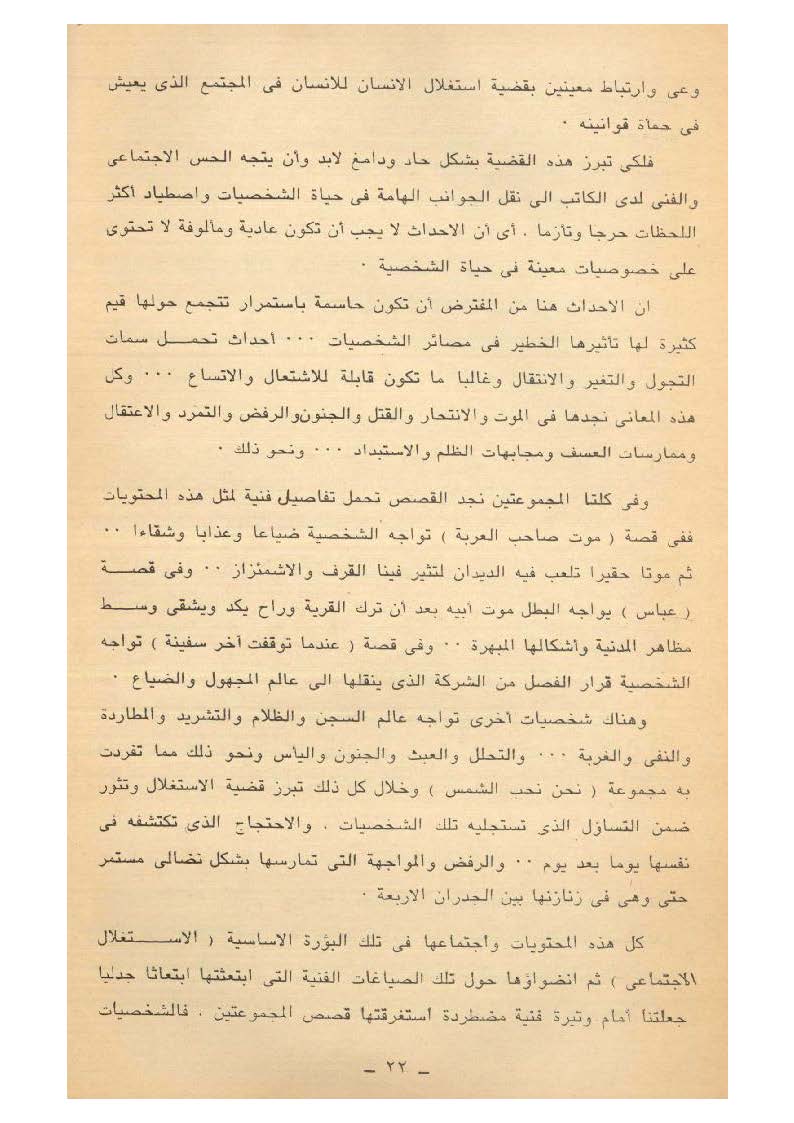 وعى وارتباط معينين بقضية استغلال الانسان للانسان فى المجتمع الذى يعيش
فى حمأة قوانينه ٠
فلكى تبرز هذه القضية بشكل حاد ودامغ لابد وأن يتجه الحس الاجتماعى
والفنى لدى الكاتب الى نقل الجوانب الهامة فى حياة الشخصيات واصطياد أكثر
اللحظات حرجا وتأزما . أى أن الاحداث لا يجب أن تكون عادية ومألوفة لا تحتوى
على خصوصيات معينة فى حياة الشخصية ٠
ان الاحداث هنا من المفترض أن تكون حاسمة باستمرار تتجمع حولها قيم
كثيرة لها تأثيرها الخطير فى مصائر الشخصيات ٠٠٠ أحداث تحمـــل سمات
التجول والتغير والانتقال وغالبا ما تكون قابلة للاشتعال والاتساع ٠٠٠ وكل
هذه المعانى نجدها فى الموت والانتحار والقتل والجنون والرفض والتمرد والاعتقال
وممارسات العسف ومجابهات الظلم والاستبداد ٠٠٠ ونحو ذلك ٠
وفى كلتا المجموعتين نجد القصص تحمل تفاصيل فنية لمثل هذه المحتويات
ففى قصة ( موت صاحب العربة ) تواجه الشخصية ضياعا وعذابا وشقاءا ٠٠
ثم موتا حقيرا تلعب فيه الديدان لتثير فينا القرف والاشمئزاز ٠٠ وفى قصـــة
( عباس ) يواجه البطل موت أبيه بعد أن ترك القرية وراح يكد ويشقى وســط
مظاهر المدنية وأشكالها المبهرة ٠٠ وفى قصة ( عندما توقفت آخر سفينة ) تواجه
الشخصية قرار الفصل من الشركة الذى ينقلها الى عالم المجهول والضياع ٠
وهناك شخصيات أخرى تواجه عالم السجن والظلام والتشريد والمطاردة
والنفى والغربة ٠٠٠ والتحلل والعبث والجنون واليأس ونحو ذلك مما تفردت
به مجموعة ( نحن نحب الشمس ) وخلال كل ذلك تبرز قضية الاستغلال وتثور
ضمن التساؤل الذى تستجليه تلك الشخصيات . والاحتجاج الذى تكتشفه فى
نفسها يوما بعد يوم ٠٠ والرفض والمواجهة التى تمارسها بشكل نضالى مستمر
حتى وهى فى زنازنها بين الجدران الاربعة ٠
كل هذه المحتويات وأجتماعها فى تلك البؤرة الاساسية ( الاســـتغلال
الاجتماعى ) ثم انضواؤها حول تلك الصياغات الفنية التى ابتعثتها ابتعاثا جدليا
جعلتنا أمام وتيرة فنية مضطردة أستغرقتها قصص المجموعتين . فالشخصيات
ـ ٢٢ ـ